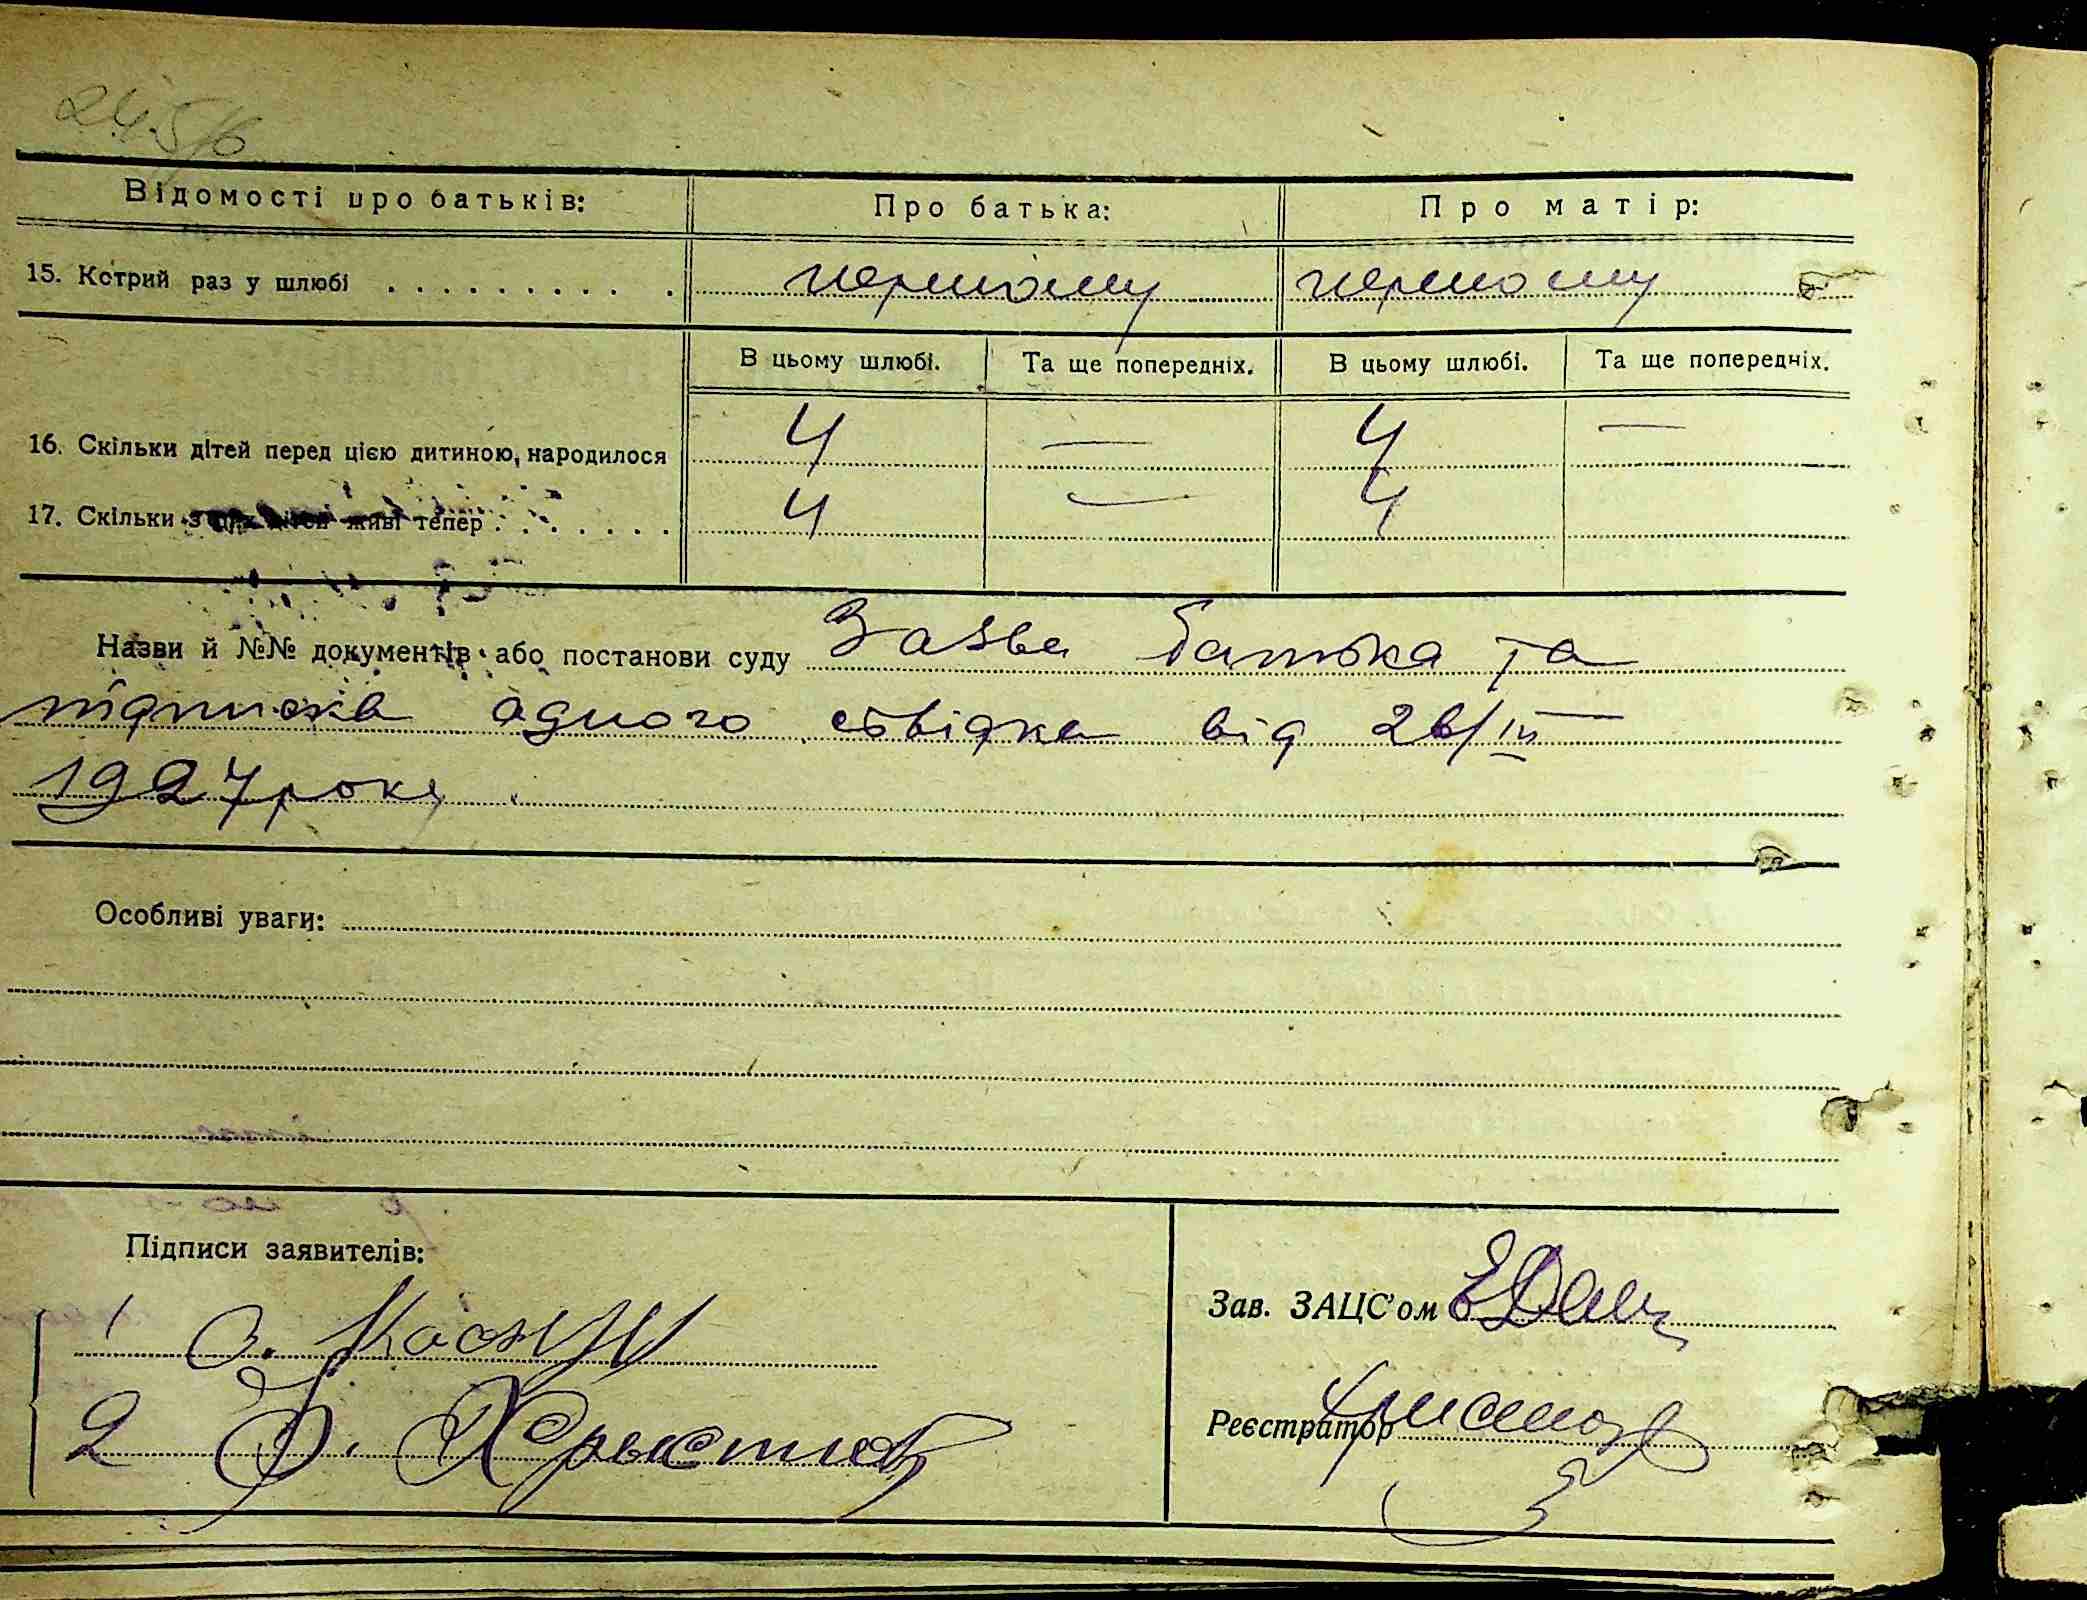 245/б
Відомості про батьків: Про батька: Про матір:
15. Котрий раз у шлюбі першому першому
В цьому шлюбі. Та ще попередніх. В цьому шлюбі. Та ще попередніх.
16. Скільки дітей перед цією дитиною, народилося 4 — 4 —
17. Скільки з цих дітей живі тепер 4 — 4
Назви й №№ документів або постанови суду Заява батька та
підписка одного свідка від 26/III
1927 року
Особливі уваги:
Підписи заявителів:
1 О.
2 Хрыстич
Зав. ЗАЦС'ом
Реєстратор